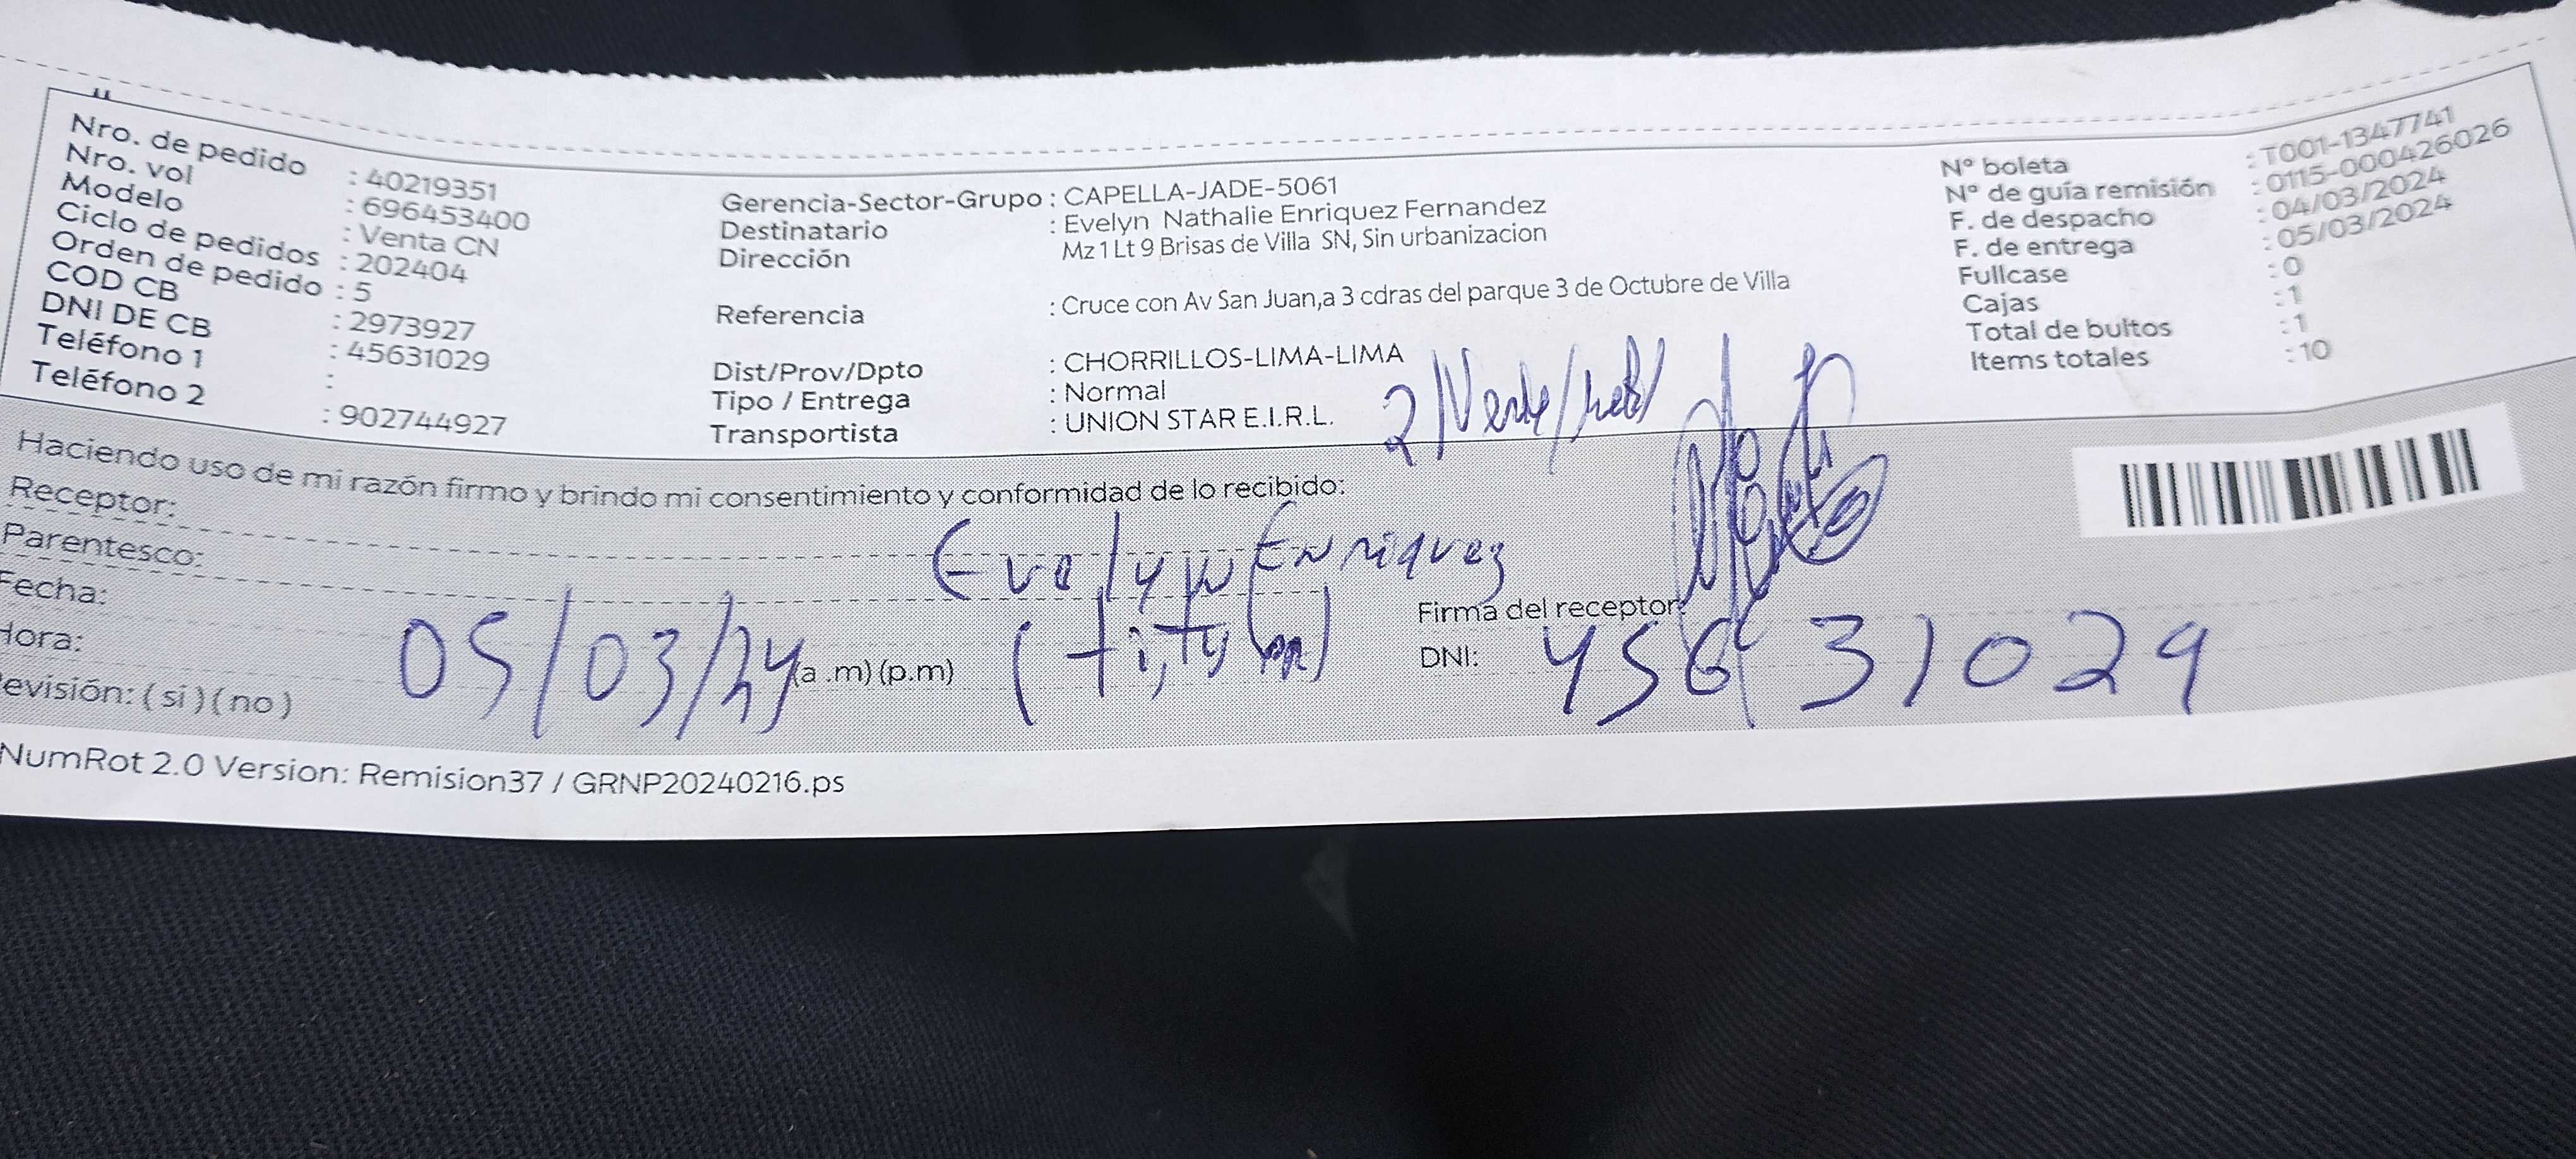 Nro. de pedido : 40219351
Nro. vol : 696453400
Modelo : Venta CN
Ciclo de pedidos : 202404
Orden de pedido : 5
COD CB : 2973927
DNI DE CB : 45631029
Teléfono 1 :
Teléfono 2 : 902744927
Gerencia-Sector-Grupo : CAPELLA-JADE-5061
Destinatario : Evelyn Nathalie Enriquez Fernandez
Dirección Mz 1 Lt 9 Brisas de Villa SN, Sin urbanizacion
Referencia : Cruce con Av San Juan,a 3 cdras del parque 3 de Octubre de Villa
Dist/Prov/Dpto : CHORRILLOS-LIMA-LIMA
Tipo / Entrega : Normal
Transportista : UNION STAR E.I.R.L.
N° boleta : T001-1347741
N° de guía remisión : 0115-000426026
F. de despacho : 04/03/2024
F. de entrega : 05/03/2024
Fullcase : 0
Cajas : 1
Total de bultos : 1
Items totales : 10
2/Verde/
Haciendo uso de mi razón firmo y brindo mi consentimiento y conformidad de lo recibido:
Receptor: Evelyn Enriquez
Parentesco: (titular)
Fecha: 05/03/24
Hora: (a .m) (p.m)
evisión: ( si ) ( no )
Firma del receptor:
DNI: 45631029
NumRot 2.0 Version: Remision37 / GRNP20240216.ps